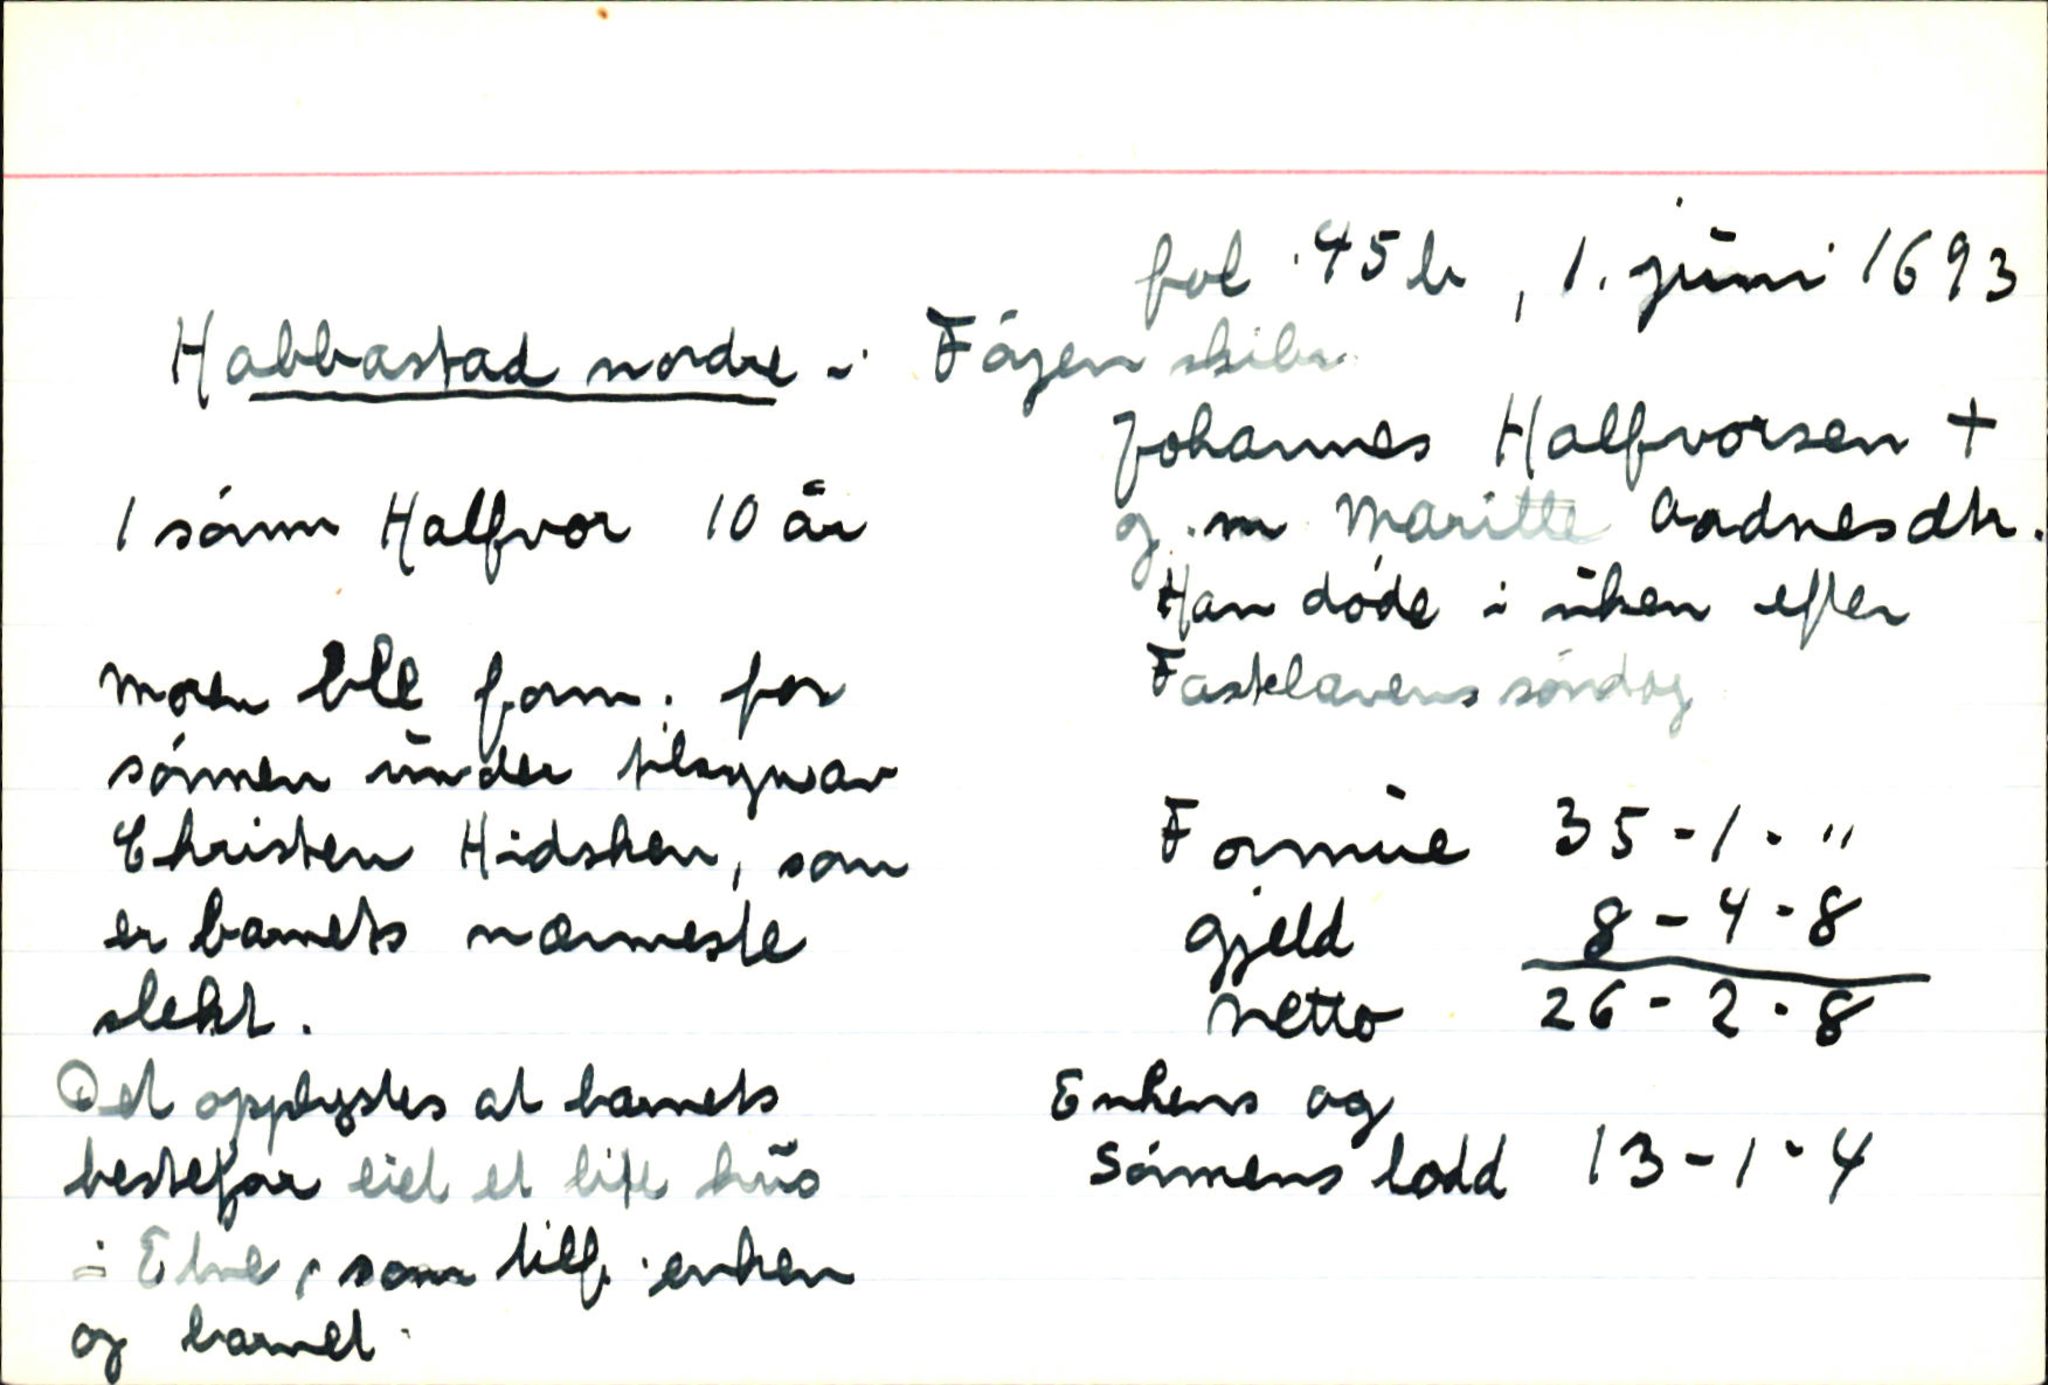 fol. 45 b, 1. juni 1693
Habbastad nordre i Fåjen skibr.
Johannes Halfvorsen +
g. m Maritte Aadnesdtr.
Han døde i uken efter
Fastelavens søndag
1 sønn Halfvor 10 år
Moren ble form. for
sønnen under tilsyn av
Christen Hidsken, som
er barnets nærmeste
slekt.
Det opplystes at barnets
bestefar eiet et lite hus
i Etne, som tilf. enken
og barnet.
Formue 35 - 1 - "
gjeld 8 - 4 - 8
Netto 26 - 2 - 8
Enkens og
Sønnens lodd 13 - 1 - 4